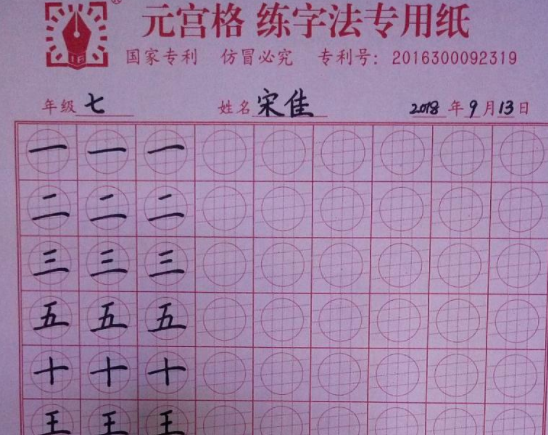 元宫格 练字法专用纸
国家专利 仿冒必究 专利号: 2016300092319
年级 七 姓名 宋佳 2018 年 9 月 13 日
一 一 一
二 二 二
三 三 三
五 五 五
十 十 十
王 王 王